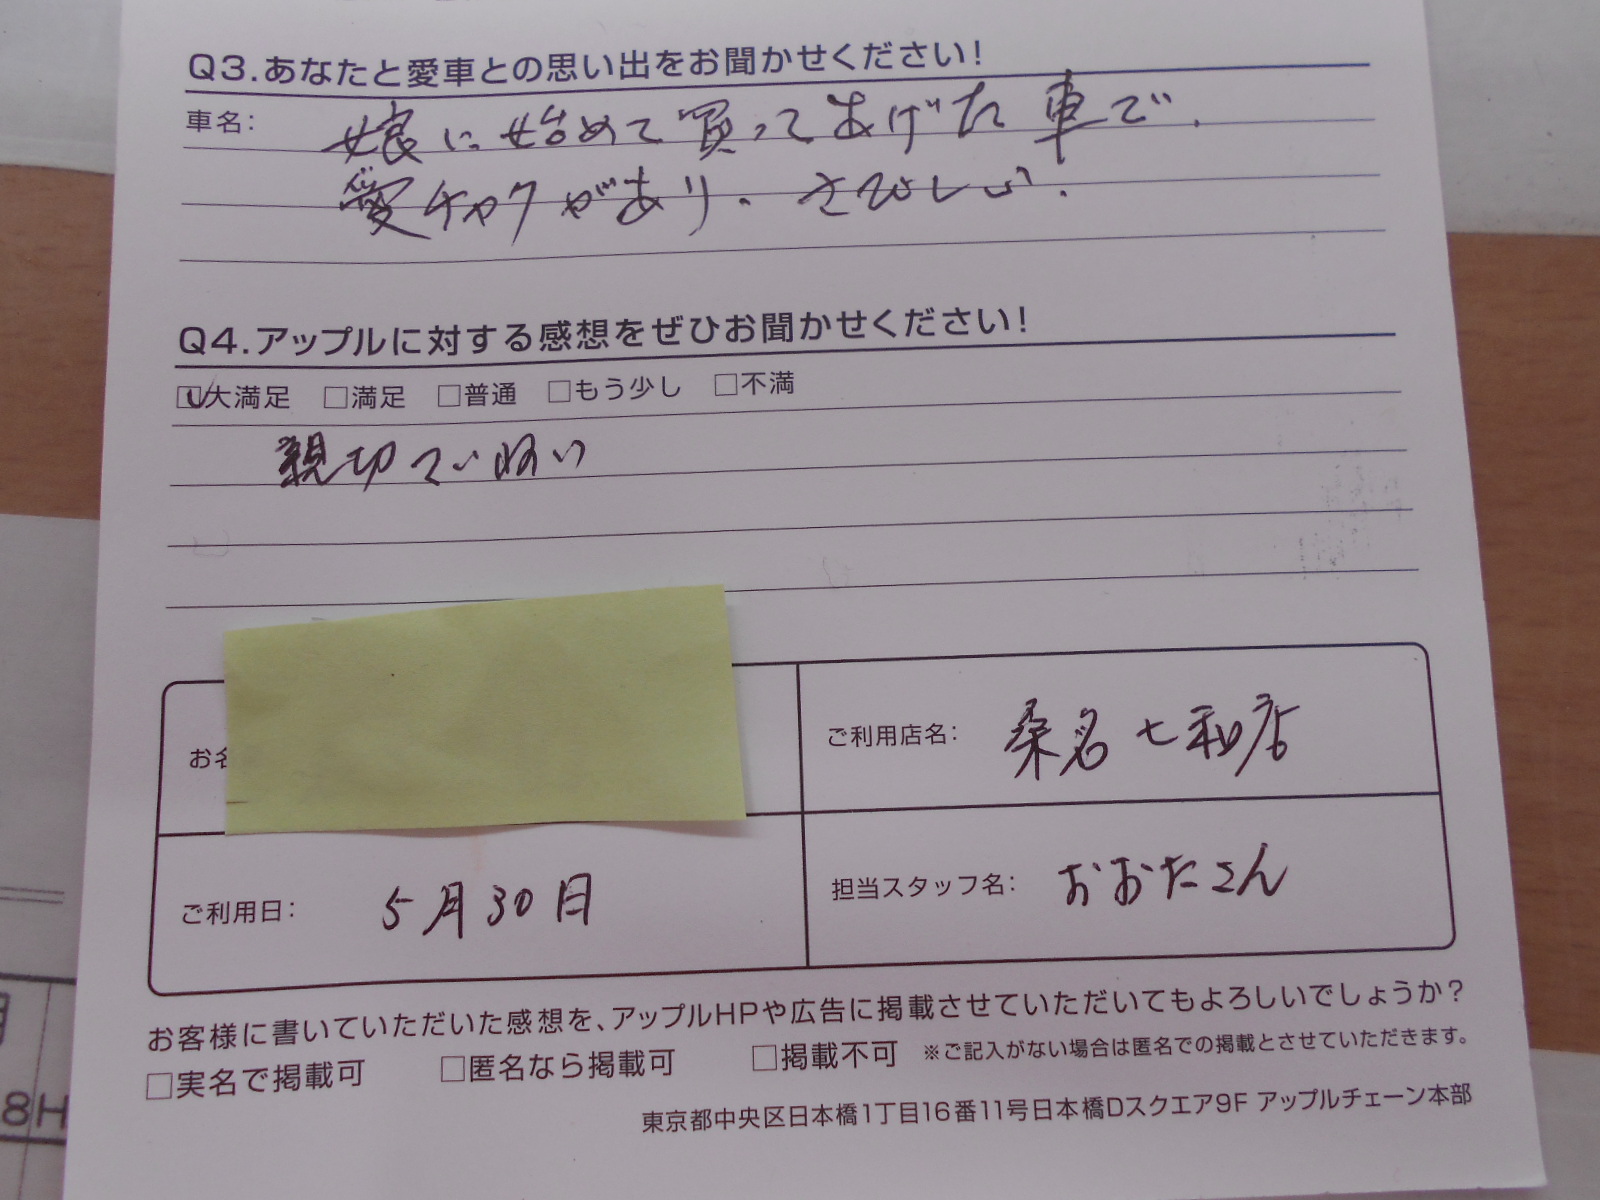 Q3.あなたと愛車との思い出をお聞かせください!
車名: 娘に始めて買ってあげた車で、
愛チャクがあり、さびしい。
Q4.アップルに対する感想をぜひお聞かせください!
☑大満足 □満足 □普通 □もう少し □不満
親切ていねい
お名
ご利用店名: 桑名七和店
ご利用日: 5月30日
担当スタッフ名: おおたさん
お客様に書いていただいた感想を、アップルHPや広告に掲載させていただいてもよろしいでしょうか?
□実名で掲載可 □匿名なら掲載可 □掲載不可 ※ご記入がない場合は匿名での掲載とさせていただきます。
東京都中央区日本橋1丁目16番11号日本橋Dスクエア9F アップルチェーン本部
8H